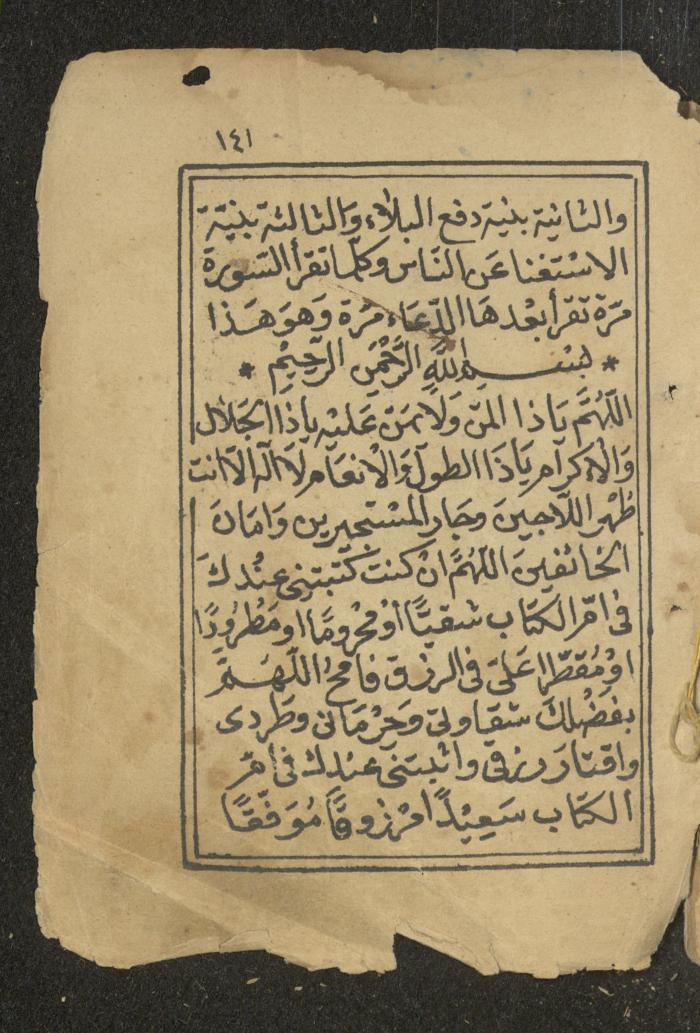 ١٤١
والثانية بنية دفع البلاء والثالثة بنية
الاستغنا عن الناس وكلما تقرأ السورة
مرة تقرأ بعدها الدعاء مرة وهو هذا
* بسم الله الرحمن الرحيم *
اللهم يا ذا المن ولا يمن عليه يا ذا الجلال
والاكرام يا ذا الطول والانعام لا اله الا انت
ظهر اللاجين وجار المستجيرين وامان
الخائفين اللهم ان كنت كتبتني عندك
في ام الكتاب شقيا او محروما او مطرودا
او مقترا علي في الرزق فامح اللهم
بفضلك شقاوتي وحرماني وطردي
واقتار رزقي واثبتني عندك في ام
الكتاب سعيدا مرزوقا موفقا